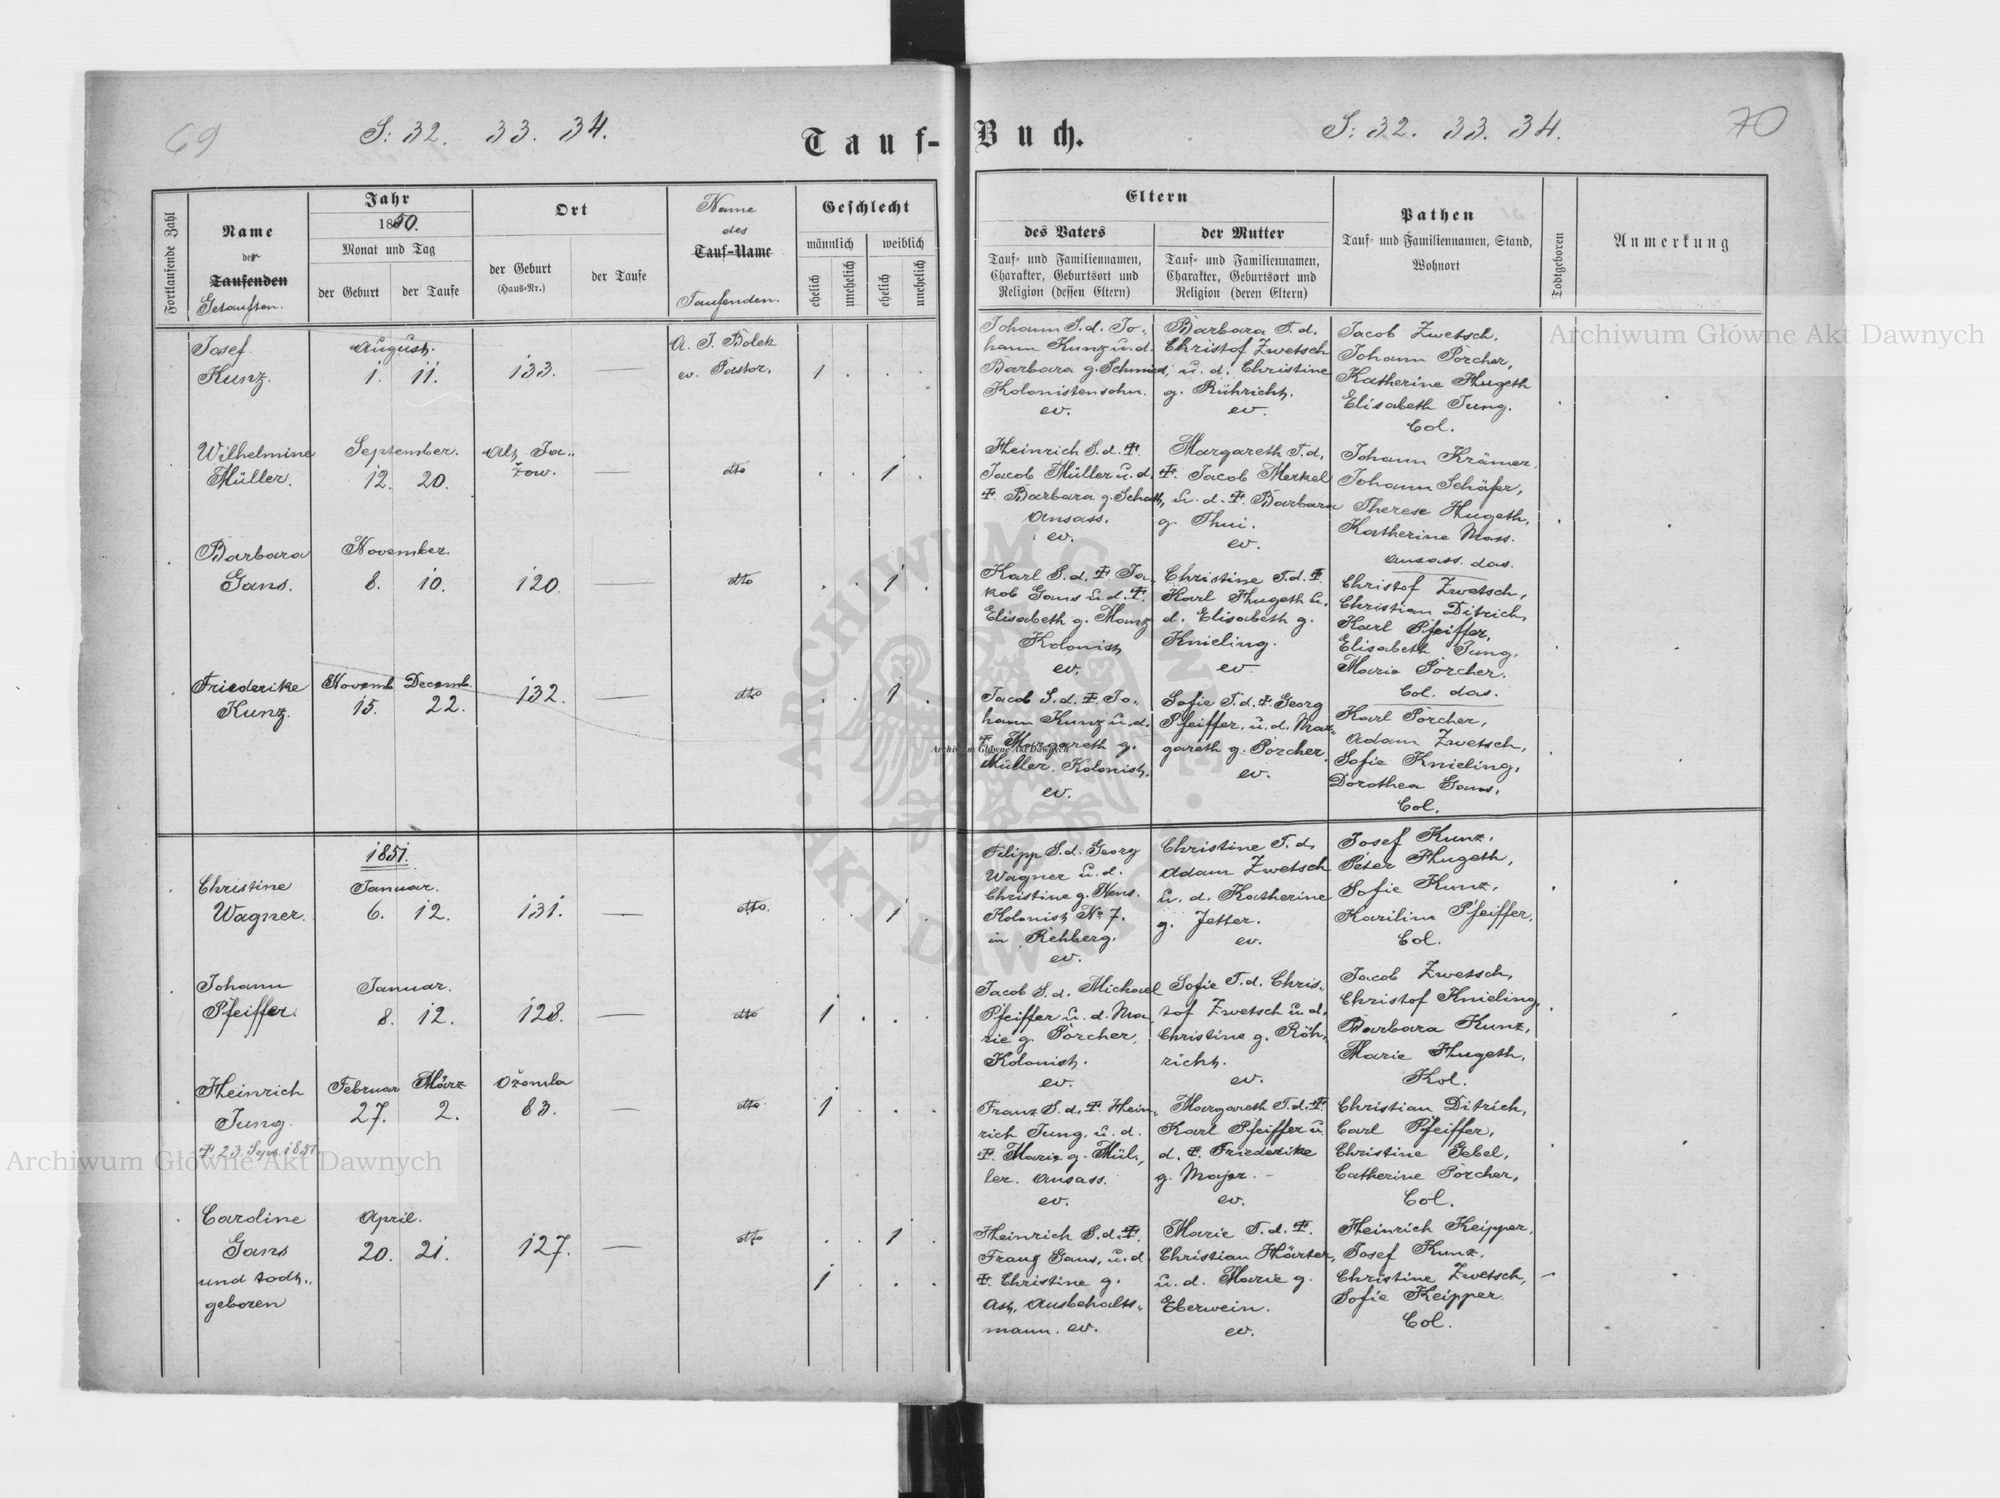 69
S: 32. 33. 34.
Tauf-
Buch.
S: 32. 33. 34.
70
Fortlaufende Zahl
Name
der
Taufenden
Getauften.
Jahr
1850.
Monat und Tag
der Geburt
der Taufe
Ort
der Geburt
(Haus-Nr.)
der Taufe
Name
des
Tauf-Name
Taufenden.
Geschlecht
männlich
weiblich
ehelich
unehelich
ehelich
unehelich
Eltern
des Vaters
Tauf- und Familiennamen,
Charakter, Geburtsort und
Religion (dessen Eltern)
der Mutter
Tauf- und Familiennamen,
Charakter, Geburtsort und
Religion (deren Eltern)
Pathen
Tauf- und Familiennamen, Stand,
Wohnort
Todtgeboren
Anmerkung
Josef
Kunz.
August.
1. 11.
133.
A. J. Bolek
ev. Pastor.
1
Johann S. d. Jo-
hann Kunz u. d.
Barbara g. Schmied,
Kolonistensohn.
ev.
Barbara T. d.
Christof Zwetsch
u. d. Christine
g. Rührich.
ev.
Jacob Zwetsch,
Johann Porcher,
Katherine Hugeth
Elisabeth Jung.
Col.
Wilhelmine
Müller.
September.
12. 20.
Alt Ja-
żow.
dto
1
Heinrich S. d. ✝
Jacob Müller u. d.
✝ Barbara g. Schott,
Ansass.
ev.
Margareth T. d.
✝ Jacob Merkel
u. d. ✝ Barbara
g. Thui.
ev.
Johann Krämer
Johann Schäfer,
Therese Hugeth,
Katherine Moss.
ansass. das.
Barbara
Gans.
November.
8. 10.
120
dto
1
Karl S. d. ✝ Ja-
kob Gans u. d. ✝
Elisabeth g. Manz
Kolonist
ev.
Christine T. d. ✝
Karl Hugeth u.
d. Elisabeth g.
Knieling.
ev
Christof Zwetsch,
Christian Ditrich,
Karl Pfeiffer,
Elisabeth Jung,
Marie Porcher.
Col. das.
Friederike
Kunz.
Novemb Decemb.
15. 22.
132.
dto
1
Jacob S. d. ✝ Jo-
hann Kunz u. d.
✝ Margareth g.
Müller. Kolonist.
ev.
Sofie T. d. ✝ Georg
Pfeiffer, u. d. Mar-
gareth g. Porcher.
ev.
Karl Porcher,
Adam Zwetsch,
Sofie Knieling,
Dorothea Gans,
Col.
1851.
Christine
Wagner.
Januar.
6. 12.
131.
dto.
1
Filipp S. d. Georg
Wagner u. d.
Christine g. Hens.
Kolonist No 7.
in Rehberg.
ev.
Christine T. d.
Adam Zwetsch
u. d. Katherine
g. Jetter.
ev.
Josef Kunz.
Peter Hugeth,
Sofie Kunz.
Karilina Pfeiffer.
Col.
Johann
Pfeiffer.
Januar.
8. 12.
128.
dto
1
Jacob S. d. Michael
Pfeiffer u. d. Ma-
rie g. Porcher,
Kolonist.
ev.
Sofie T. d. Chris-
tof Zwetsch u. d.
Christine g. Röh-
richt.
ev.
Jacob Zwetsch,
Christof Knieling,
Barbara Kunz,
Marie Hugeth,
Kol.
Heinrich
Jung.
✝ 23. Sept. 1851
Februar März
27. 2.
Ożomla
83.
dto
1
Franz S. d. ✝ Hein-
rich Jung, u. d.
✝ Marie g. Mül-
ler. Ansass.
ev.
Margareth T. d. ✝
Karl Pfeiffer u.
d. ✝ Friederike
g. Major.
ev.
Christian Ditrich,
Carl Pfeiffer,
Christine Gebel,
Catherine Porcher,
Col.
Caroline
Gans
und todt-
geboren
April.
20. 21.
127.
dto
1
1
Heinrich S. d. ✝
Franz Gans, u. d
✝ Christine g.
Ast, Ausbehalts-
mann. ev.
Marie T. d. ✝
Christian Härter,
u. d. Marie g.
Eberwein.
ev.
Heinrich Keipper,
Josef Kunz,
Christine Zwetsch,
Sofie Keipper.
Col.
Archiwum Główne Akt Dawnych
Archiwum Główne Akt Dawnych
Archiwum Główne Akt Dawnych
ARCHIWUM GŁÓWNE AKT DAWNYCH